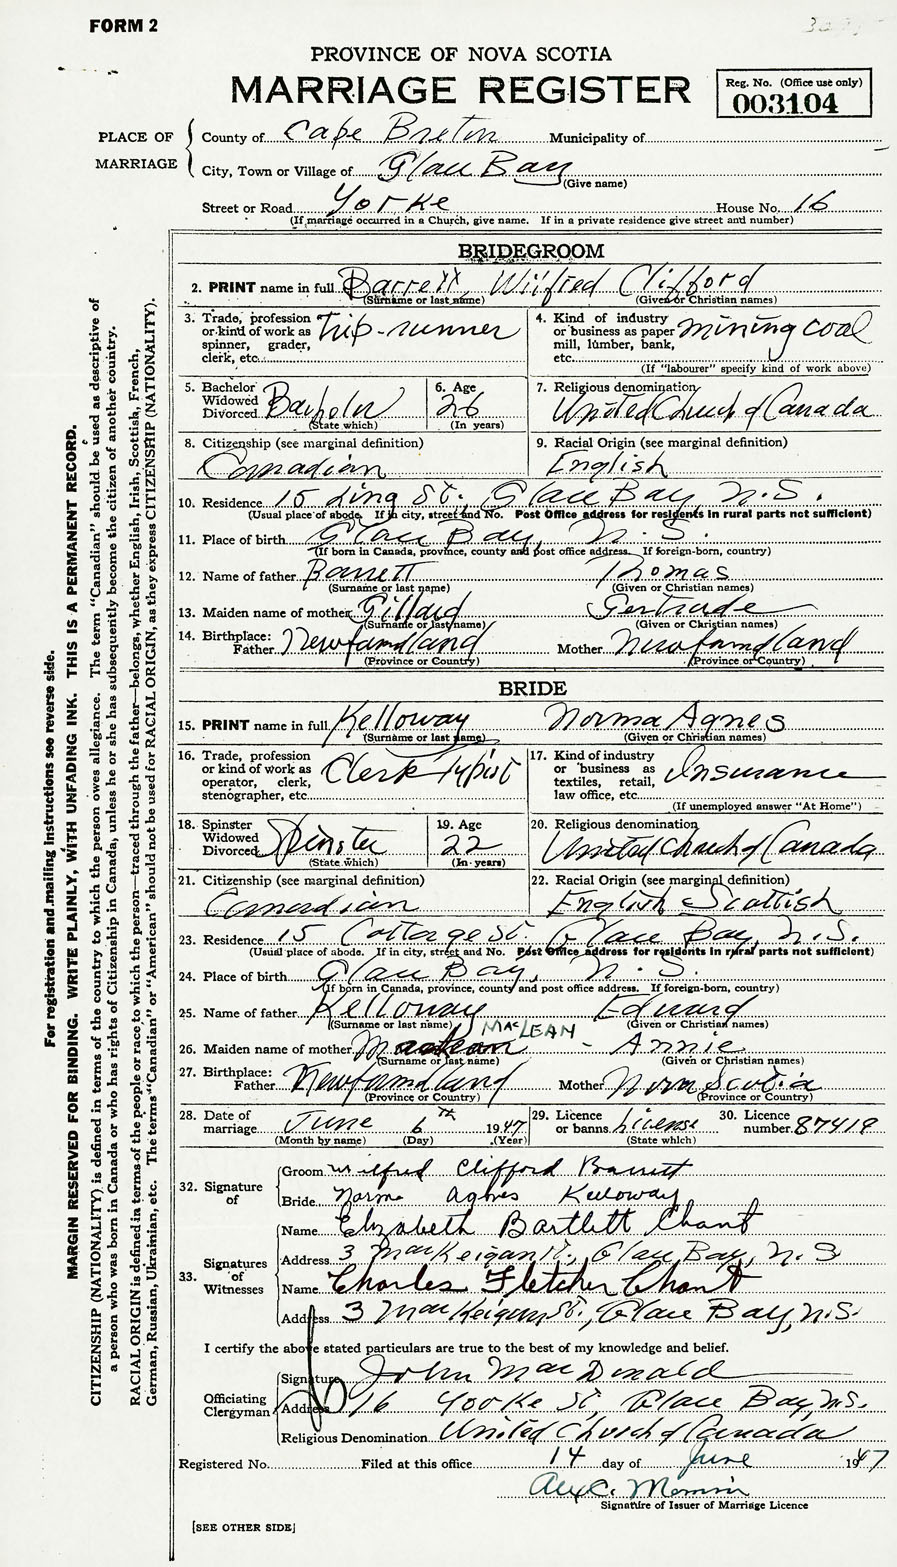 FORM 2
PROVINCE OF NOVA SCOTIA
MARRIAGE REGISTER
Reg. No. (Office use only)
003104
PLACE OF MARRIAGE
County of Cape Breton Municipality of
City, Town or Village of Glace Bay
(Give name)
Street or Road Yorke House No. 16
(If marriage occurred in a Church, give name. If in a private residence give street and number)
BRIDEGROOM
2. PRINT name in full Barrett, Wilfred Clifford
(Surname or last name) (Given or Christian names)
3. Trade, profession or kind of work as spinner, grader, clerk, etc. Trip-runner
4. Kind of industry or business as paper mill, lumber, bank, etc. mining coal
(If "labourer" specify kind of work above)
5. Bachelor Widowed Divorced Bachelor
(State which)
6. Age 26
(In years)
7. Religious denomination
United Church of Canada
8. Citizenship (see marginal definition)
Canadian
9. Racial Origin (see marginal definition)
English
10. Residence 15 Ling St., Glace Bay N.S.
(Usual place of abode. If in city, street and No. Post Office address for residents in rural parts not sufficient)
11. Place of birth Glace Bay, N.S.
(If born in Canada, province, county and post office address. If foreign-born, country)
12. Name of father Barrett Thomas
(Surname or last name) (Given or Christian names)
13. Maiden name of mother Gillard Gertrude
(Surname or last name) (Given or Christian names)
14. Birthplace:
Father Newfoundland Mother Newfoundland
(Province or Country) (Province or Country)
BRIDE
15. PRINT name in full Kelloway Norma Agnes
(Surname or last name) (Given or Christian names)
16. Trade, profession or kind of work as operator, clerk, stenographer, etc. Clerk Typist
17. Kind of industry or business as textiles, retail, law office, etc. Insurance
(If unemployed answer "At Home")
18. Spinster Widowed Divorced Spinster
(State which)
19. Age 22
(In years)
20. Religious denomination
United Church of Canada
21. Citizenship (see marginal definition)
Canadian
22. Racial Origin (see marginal definition)
English Scottish
23. Residence 15 Cottage St. Glace Bay, N.S.
(Usual place of abode. If in city, street and No. Post Office address for residents in rural parts not sufficient)
24. Place of birth Glace Bay, N.S.
(If born in Canada, province, county and post office address. If foreign-born, country)
25. Name of father Kelloway Edward
(Surname or last name) (Given or Christian names)
MACLEAN
26. Maiden name of mother MacLean - Annie
(Surname or last name) (Given or Christian names)
27. Birthplace:
Father Newfoundland Mother Nova Scotia
(Province or Country) (Province or Country)
28. Date of marriage June 6th 1947
(Month by name) (Day) (Year)
29. Licence or banns License
(State which)
30. Licence number 87419
32. Signature of
Groom Wilfred Clifford Barrett
Bride Norma Agnes Kelloway
33. Signatures of Witnesses
Name Elizabeth Bartlett Chant
Address 3 MacKeigan St., Glace Bay, N.S
Name Charles Fletcher Chant
Address 3 MacKeigan St., Glace Bay, N.S.
I certify the above stated particulars are true to the best of my knowledge and belief.
Officiating Clergyman
Signature John MacDonald
Address 16 Yorke St, Glace Bay, N.S.
Religious Denomination United Church of Canada
Registered No. Filed at this office 14 day of June 1947
Alex C.
Signature of Issuer of Marriage Licence
[SEE OTHER SIDE]
For registration and mailing instructions see reverse side.
MARGIN RESERVED FOR BINDING. WRITE PLAINLY, WITH UNFADING INK. THIS IS A PERMANENT RECORD.
CITIZENSHIP (NATIONALITY) is defined in terms of the country to which the person owes allegiance. The term "Canadian" should be used as descriptive of
a person who was born in Canada or who has rights of Citizenship in Canada, unless he or she has subsequently become the citizen of another country.
RACIAL ORIGIN is defined in terms of the people or race to which the person—traced through the father—belongs, whether English, Irish, Scottish, French,
German, Russian, Ukrainian, etc. The terms "Canadian" or "American" should not be used for RACIAL ORIGIN, as they express CITIZENSHIP (NATIONALITY).